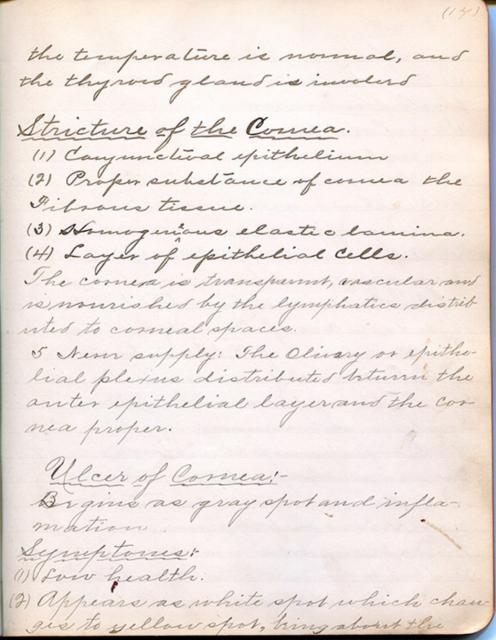 (17)
the temperature is normal, and
the thyroid gland is involerd
Stricture of the Cornea.
(1) Conjunctival epithelium
(2) Proper substance of cornea the
Fibrous tissue.
(3) Homogenious elastic lamina.
(4) Layer of epithelial cells.
The cornea is transparent, vascular and
is nourished by the lymphatics distrib
uted to corneal spaces.
5 Nerv supply: The Cliuary or epithe-
lial plexus distributed between the
outer epithelial layer and the cor-
nea proper.
Ulcer of Cornea:-
Begins as gray spot and infla-
mation
Symptoms:-
(1) Low health.
(2) Appears as white spot which chan-
ges to yellow spot, being about the